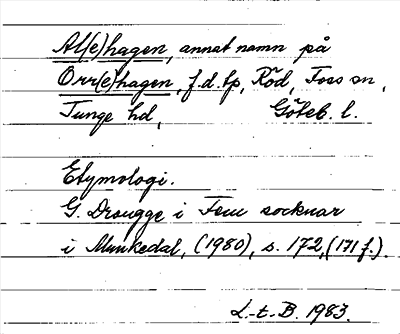 Al(e)hagen, annat namn på
Orr(e)hagen, f.d. tp, Röd, Foss sn,
Tunge hd, Göteb. l.
Etymologi.
G. Drougge i Fem socknar
i Munkedal, (1980), s. 172, (171 f.).
L-t-B. 1983.